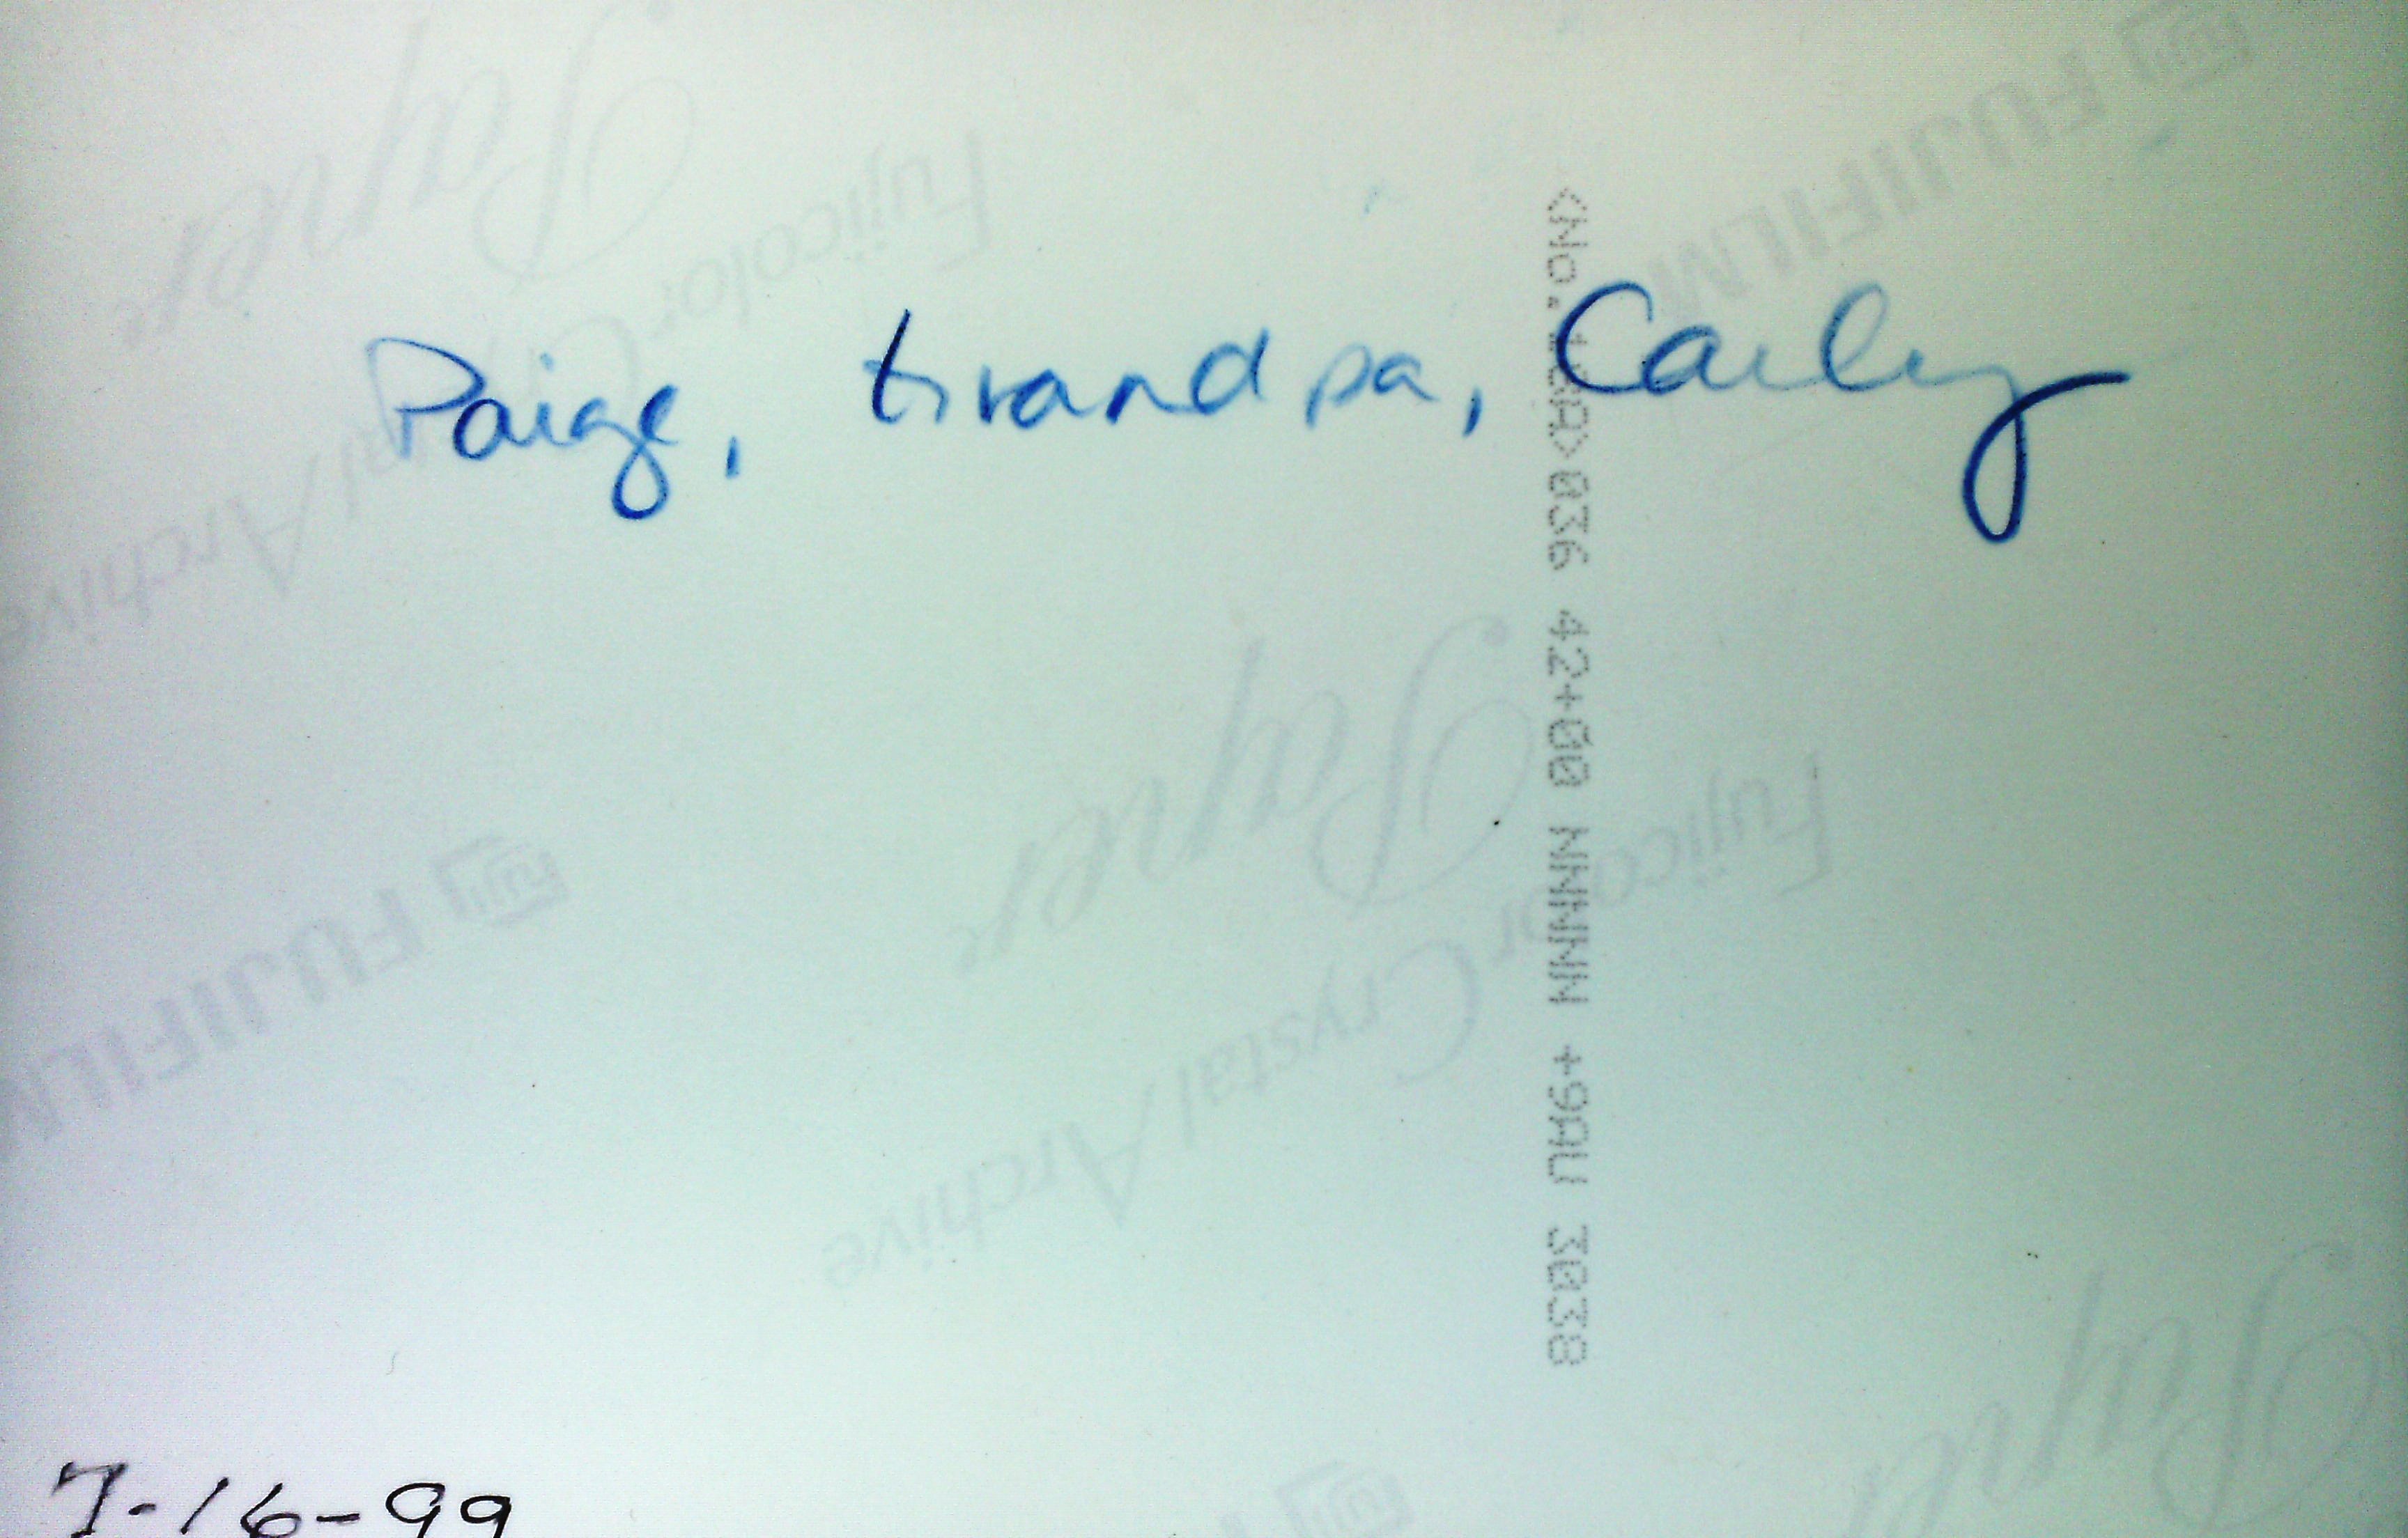 Paige, Grandpa, Carly
7-16-99
036 42+00 NNNNN +9AU 3038
FUJIFILM
Fujicolor
Crystal Archive
Paper
Fujicolor Crystal Archive
Paper
FUJIFILM
Paper